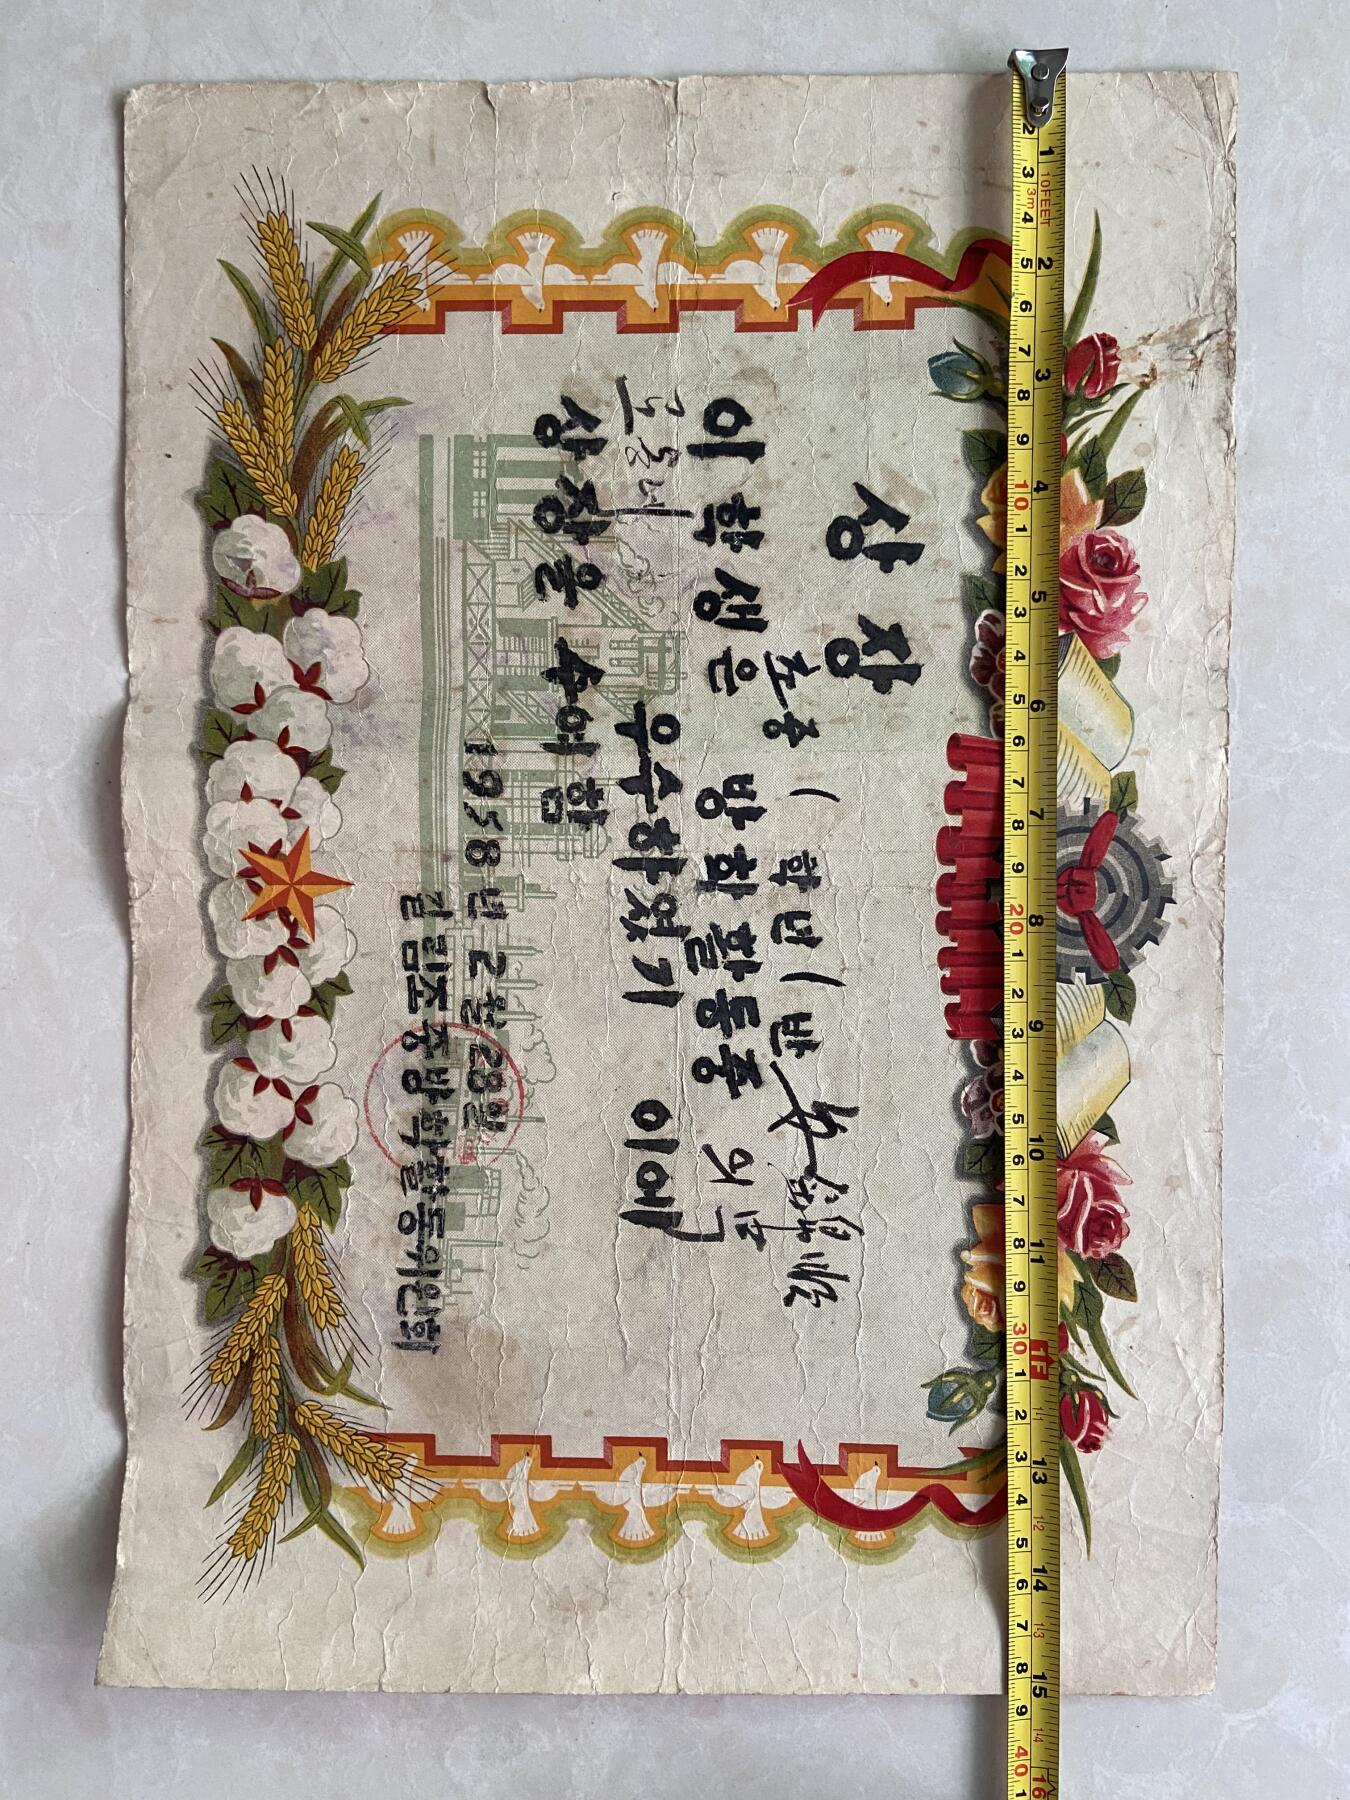 상장
초중 1 학년 1 반
이 학생은 방학활동중
우수하였기 이에
상장을 수여함
1958년 2월 28일
길림조중방학활동위원회
10FEET
3m
1F